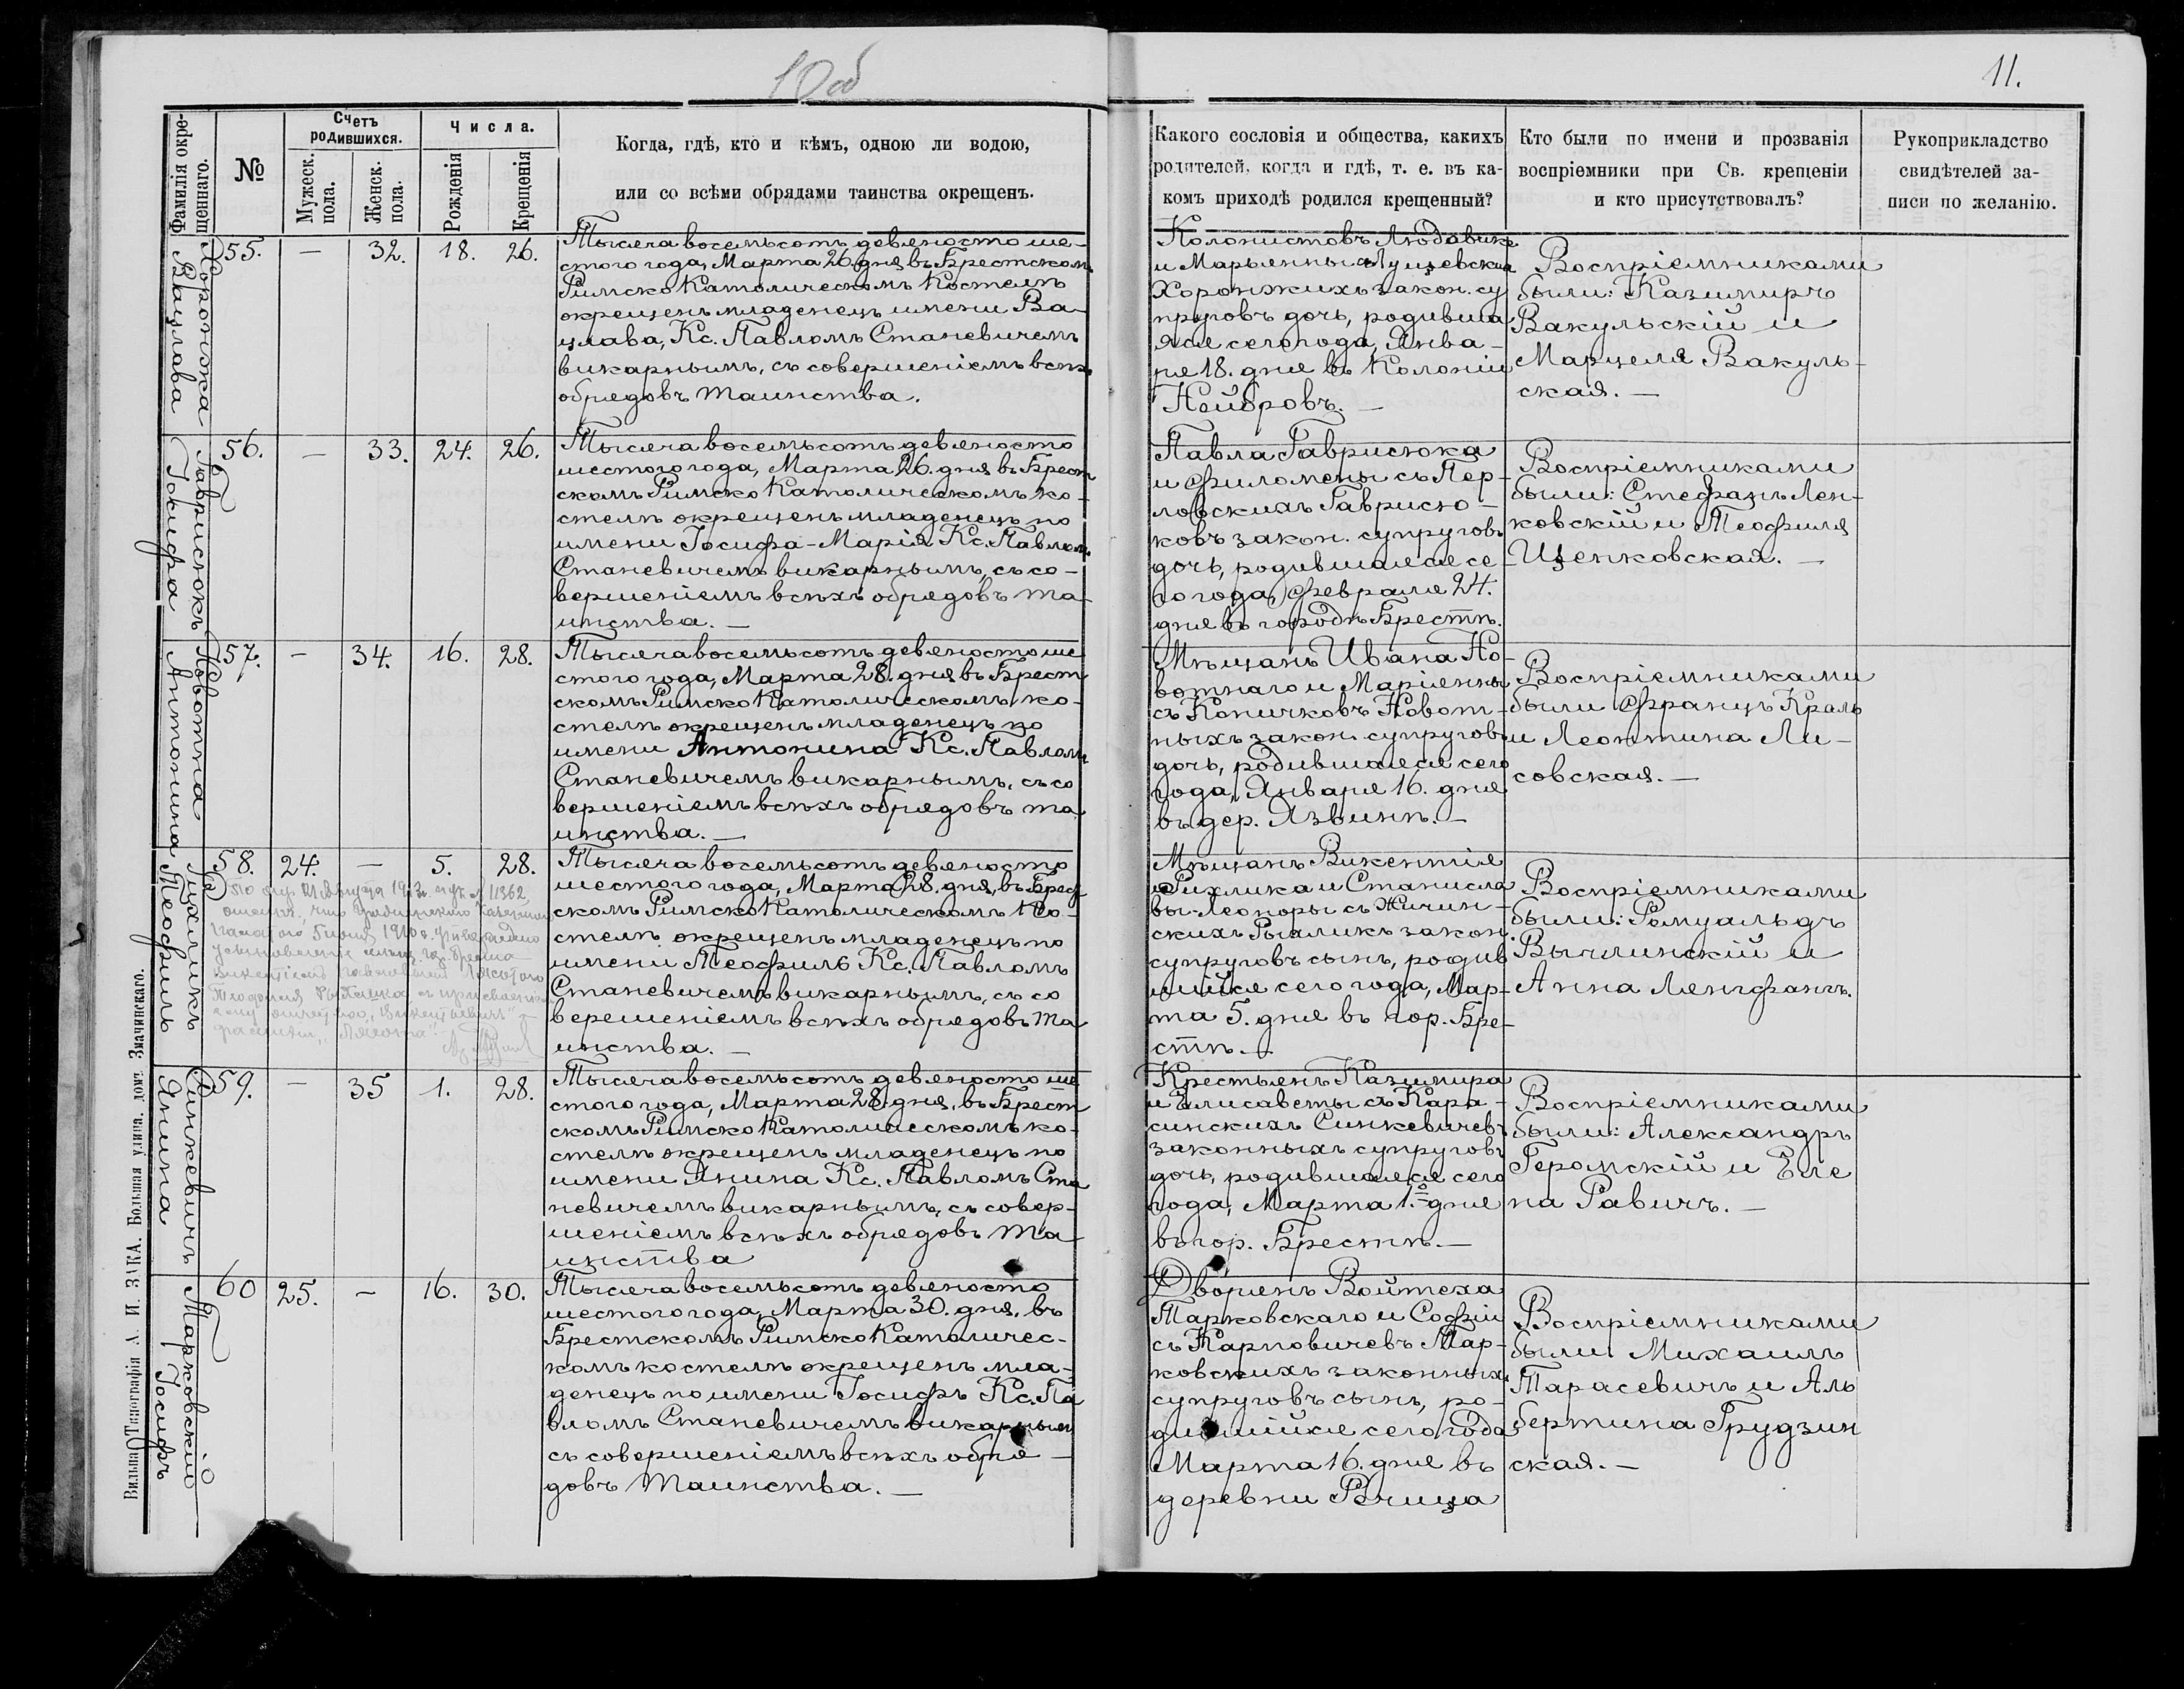 10 об
11.
Фамилія окре-
щеннаго.
№
Счетъ
родившихся.
Мужеск.
пола.
Женск.
пола.
Числа.
Рожденія
Крещенія
Когда, гдѣ, кто и кѣмъ, одною ли водою,
или со всѣми обрядами таинства окрещенъ.
Какого сословія и общества, какихъ
родителей, когда и гдѣ, т. е. въ ка-
комъ приходѣ родился крещенный?
Кто были по имени и прозванія
воспріемники при Св. крещеніи
и кто присутствовалъ?
Рукоприкладство
свидѣтелей за-
писи по желанію.
Хоронжка
Вацлава
55. — 32. 18. 26.
Тысяча восемьсотъ девяносто ше-
стого года, Марта 26. дня въ Брестскомъ
Римско Католическомъ Костелѣ
окрещенъ младенецъ имени Ва-
цлава, Кс. Павломъ Станевичемъ
викарнымъ, съ совершеніемъ всѣхъ
обрядовъ таинства.
Колонистовъ Людовика
и Марьянны
Хоронжихъ закон. су
пруговъ дочь, родивша
яся сего года, Янва-
ря 18. дня въ Колоніи
Нейбровъ. —
Воспріемниками
были: Казимиръ
Вакульскій и
Марцеля Вакуль-
ская. —
Гаврисюкъ
Іосифа
56. — 33. 24. 26.
Тысяча восемьсотъ девяносто
шестого года, Марта 26. дня въ Брест
скомъ Римско Католическомъ ко-
стелѣ окрещенъ младенецъ по
имени Іосифа-Марія Кс. Павломъ
Станевичемъ викарнымъ, съ со-
вершеніемъ всѣхъ обрядовъ та-
инства. —
Павла Гаврисюка
и Филомены съ Пер-
ловскихъ Гаврисю-
ковъ закон. супруговъ
дочь, родившаяся се-
го года, Февраля 24.
дня въ городѣ Брестѣ.
Воспріемниками
были: Стефанъ Лен-
ковскій и Теофиля
Щепковская. —
Новотна
Антонина
57. — 34. 16. 28.
Тысяча восемьсотъ девяносто ше
стого года, Марта 28. дня въ Брест
скомъ Римско Католическомъ ко-
стелѣ окрещенъ младенецъ по
имени Антонина Кс. Павломъ
Станевичемъ викарнымъ, съ со
вершеніемъ всѣхъ обрядовъ та
инства. —
Мѣщанъ Ивана Но-
вотнаго и Маріянны
съ Коничковъ Новот-
ныхъ закон. супруговъ
дочь, родившаяся сего
года, Января 16. дня
въ дер. Язвинѣ. —
Воспріемниками
были Францъ Краль
и Леонтина Ли-
совская. —
Рихликъ
Теофиль
58. 24. — 5. 28.
Тысяча восемьсотъ девяносто
шестого года, Марта 28. дня, въ Брест
скомъ Римско Католическомъ Ко-
стелѣ окрещенъ младенецъ по
имени Теофиль Кс. Павломъ
Станевичемъ викарнымъ, съ со
вершеніемъ всѣхъ обрядовъ Та
инства. —
Мѣщанъ Викентія
Рихлика и Станисла
вы-Леоноры съ Жичин-
скихъ Рихликъ закон.
супруговъ сынъ, родив
шійся сего года, Мар-
та 5. дня въ гор. Бре-
стѣ. —
Воспріемниками
были: Ромуальдъ
Вычлинскій и
Анна Ленгфангъ.
Синкевичъ
Янина
59. — 35 1. 28.
Тысяча восемьсотъ девяносто ше
стого года, Марта 28. дня, въ Брест
скомъ Римско Католическомъ ко-
стелѣ окрещенъ младенецъ по
имени Янина Кс. Павломъ Ста
невичемъ викарнымъ, съ совер-
шеніемъ всѣхъ обрядовъ Та
инства
Крестьянъ Казимира
и Елисаветы съ Кара-
синскихъ Синкевичевъ
законныхъ супруговъ
дочь, родившаяся сего
года, Марта 1. дня
въ гор. Брестѣ. —
Воспріемниками
были: Александръ
Геромскій и Еле
на Равичъ. —
Марковскій
Іосифъ
60 25. — 16. 30.
Тысяча восемьсотъ девяносто
шестого года, Марта 30. дня, въ
Брестскомъ Римско Католичес-
комъ костелѣ окрещенъ мла-
денецъ по имени Іосифъ Кс. Па
вломъ Станевичемъ викарнымъ
съ совершеніемъ всѣхъ обря-
довъ Таинства. —
Дворянъ Войтеха
Марковскаго и Софіи
съ Карповичевъ Мар-
ковскихъ законныхъ
супруговъ сынъ, ро-
дившійся сего года
Марта 16. дня въ
деревни Речица
Воспріемниками
были Михаилъ
Тарасевичъ и Аль
бертина Грудзин
ская. —
Вильна Типографія А. И. ЗАКА. Большая улица, домъ Значинскаго.